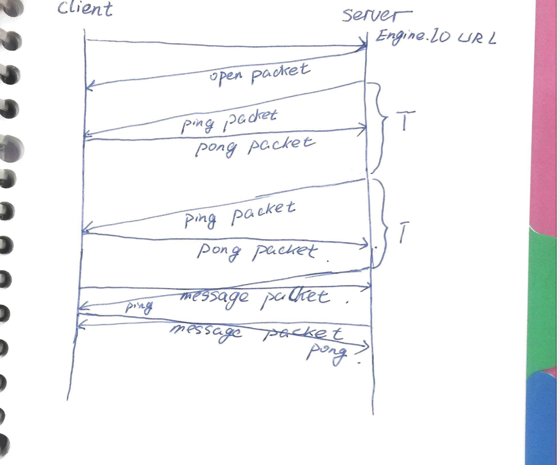 client
server
Engine.IO URL
open packet
ping packet
T
pong packet
ping packet
T
pong packet.
message packet.
ping
message packet
pong.